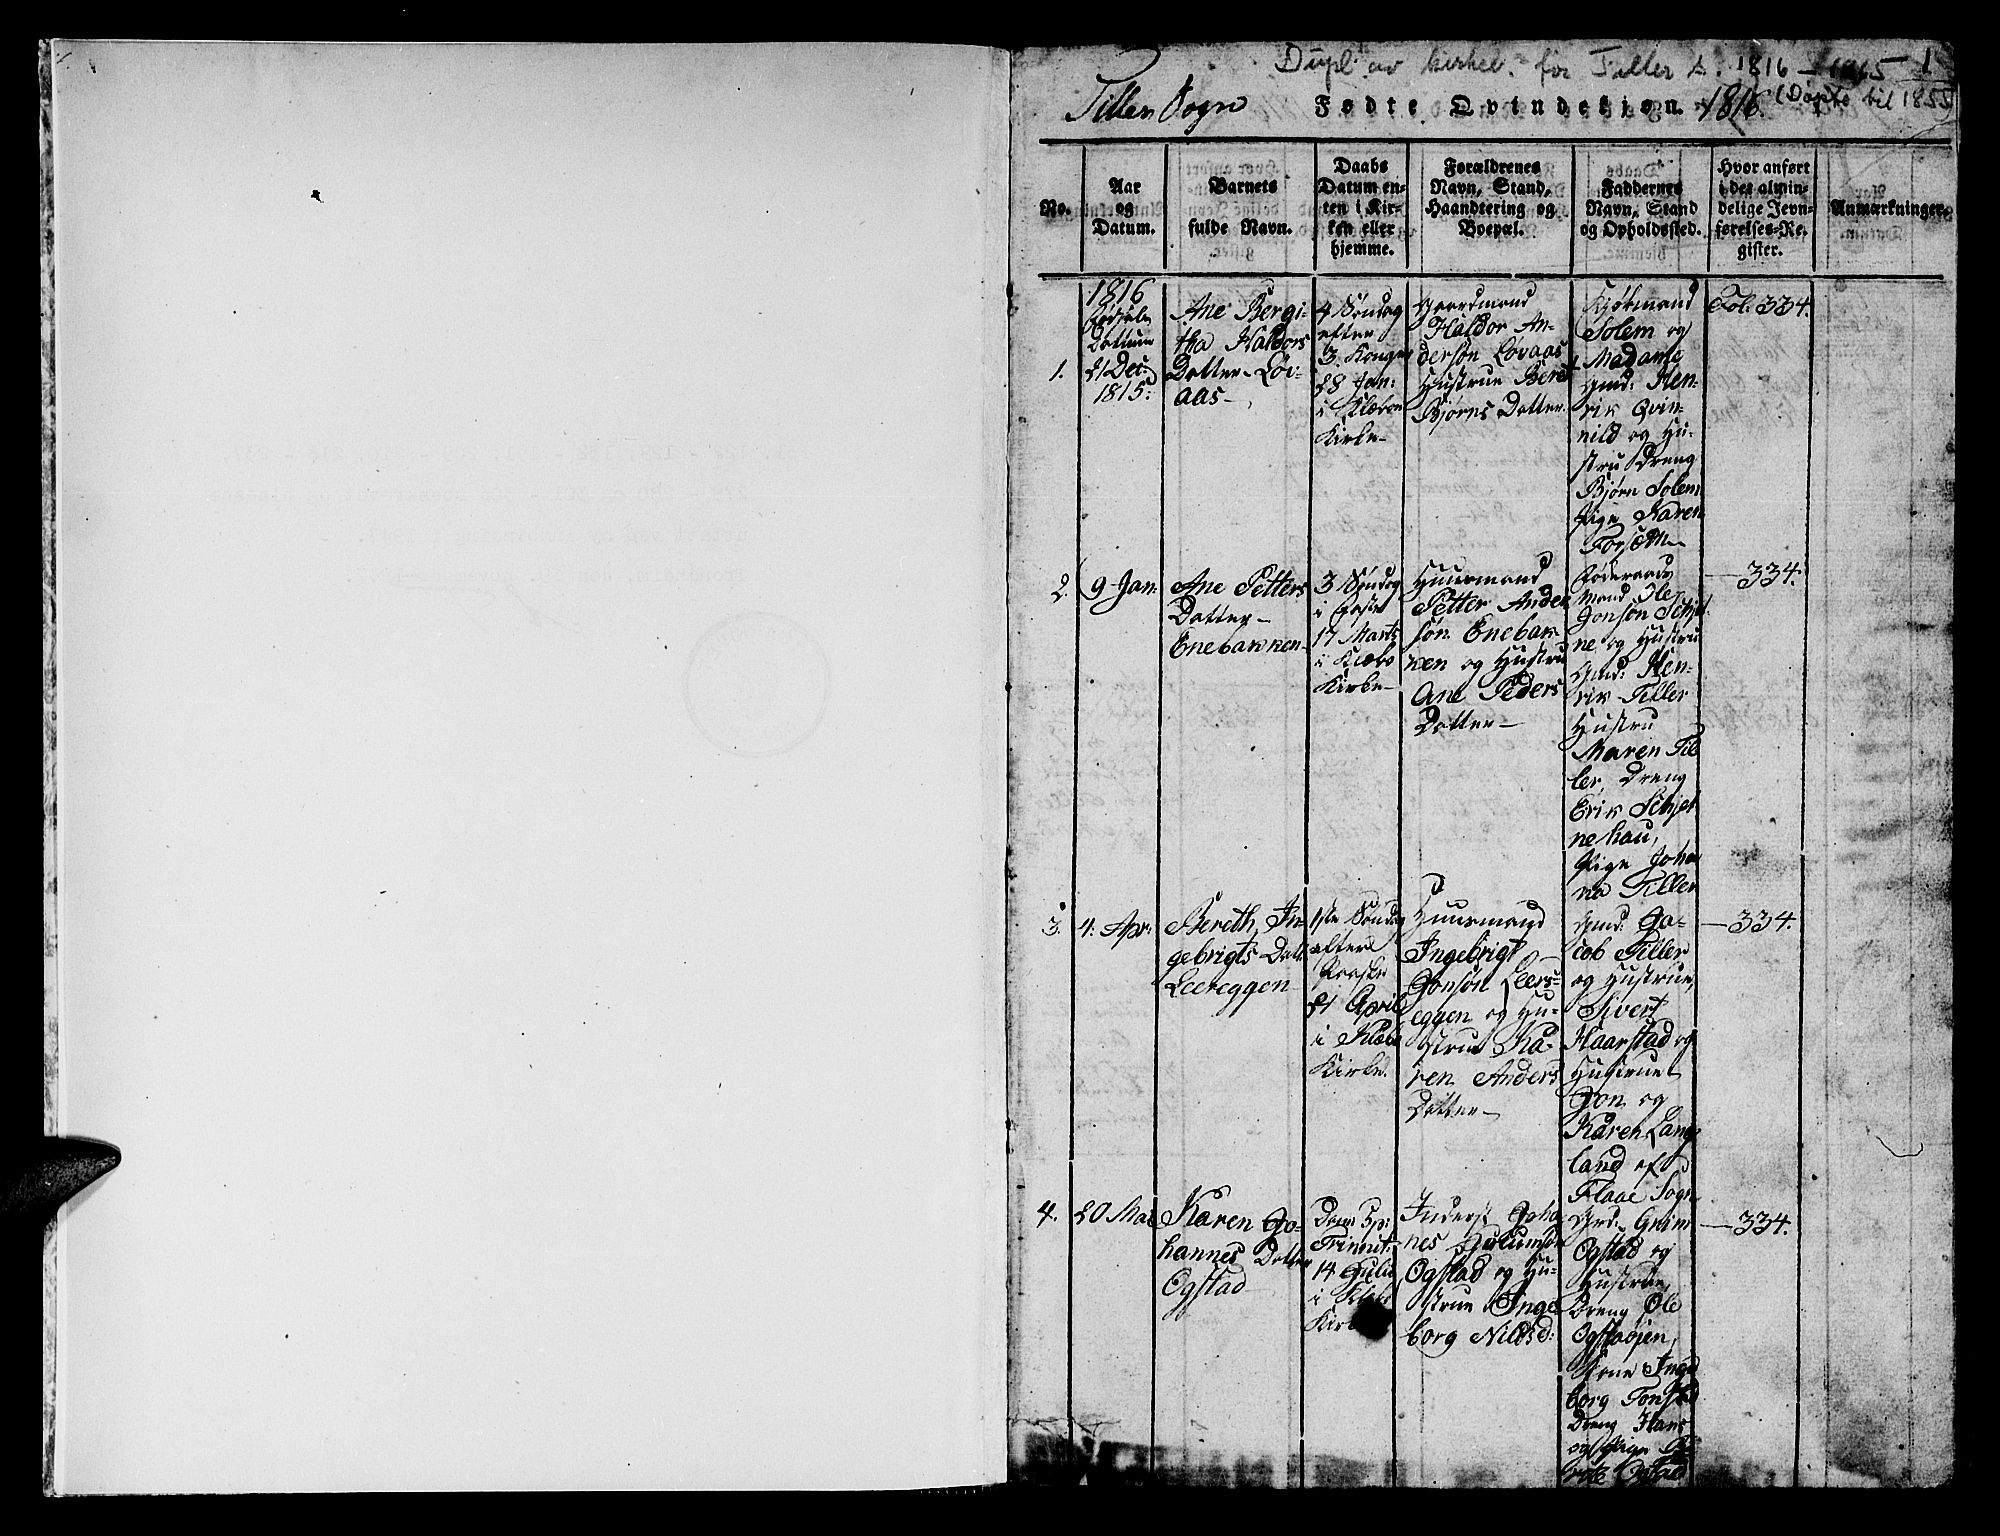 Dupl. av kirkeb. for Tiller s. 1816 - 1915 - 1
(Døpte til 1855)
Tiller Sogn Fødte Qvindekjøn 1816.
No.
Aar
og
Datum.
Barnets
fulde Navn.
Daabs
Datum en-
ten i Kir-
ken eller
hjemme.
Forældrenes
Navn, Stand,
Haandtering og
Boepæl.
Faddernes
Navn, Stand
og Opholdssted.
Hvor anført
i det almin-
delige Jevn-
førelses-Re-
gister.
Anmærkninger.
1.
1816
Fødsels
Dattum
21 Dec:
1815:
Ane Bergi-
tha Haldors
Datter Løv-
aas
4 Søndag
efter
3 Konger
28 Jan:
i Klæboe
Kirke
Gaardmand
Haldor An-
dersøn Løvaas
Hustrue Beret
Bjørns Datter
Kjøbmand
Solem og
Madame
Gmd: Hen-
rik Qvin-
nild og Hu-
stru Dreng
Bjørn Solem
Pige Karen
Forsæm
Fol. 334.
2.
9 Jan:
Ane Petters
Datter
Enebakken
3 Søndag
i Faste
17 Marts
i Klæbo
Kirke
Huusmand
Petter Ander
søn Enebak-
ken og Hustru
Ane Peders
Datter
Føderaads
mand Ole
Jonsøn Schjet
ne og Hustru
Gmd: Hen-
rik Tiller
Hustru
Maren Til
ler, Dreng
Erik Schjet
nehau,
Pige Joha
na Tiller
334.
3.
4: Apr:
Bereth In-
gebrigts Datt
Leereggen
1ste Søndag
efter
Paaske
21 April
i Klæbo
Kirke.
Huusmand
Ingebrigt
Jonsøn Leers-
eggen og Hu-
strue Ka-
ren Anders
Datter
Gmd: Ja-
cob Tiller
og Hustrue,
Sivert
Haarstad og
Hustrue
Jon og
Karen Lang
land af
Flaae Sogn
334.
4.
20 Mai
Karen Jo-
hannes Datter
Ogstad
Dom: 5 p:
Trinnit:
14 Julii
i Klæbo
Kirke
Inderst Joha
nes
Ogstad og Hu-
strue Inge
borg Nilsd:
Grd: Grim
Ogstad og
Hustrue,
Dreng Ole
Ogstaøjen,
Kone Inge
borg Tonstad
Dreng Hans
og Pige
Ogstad
334.